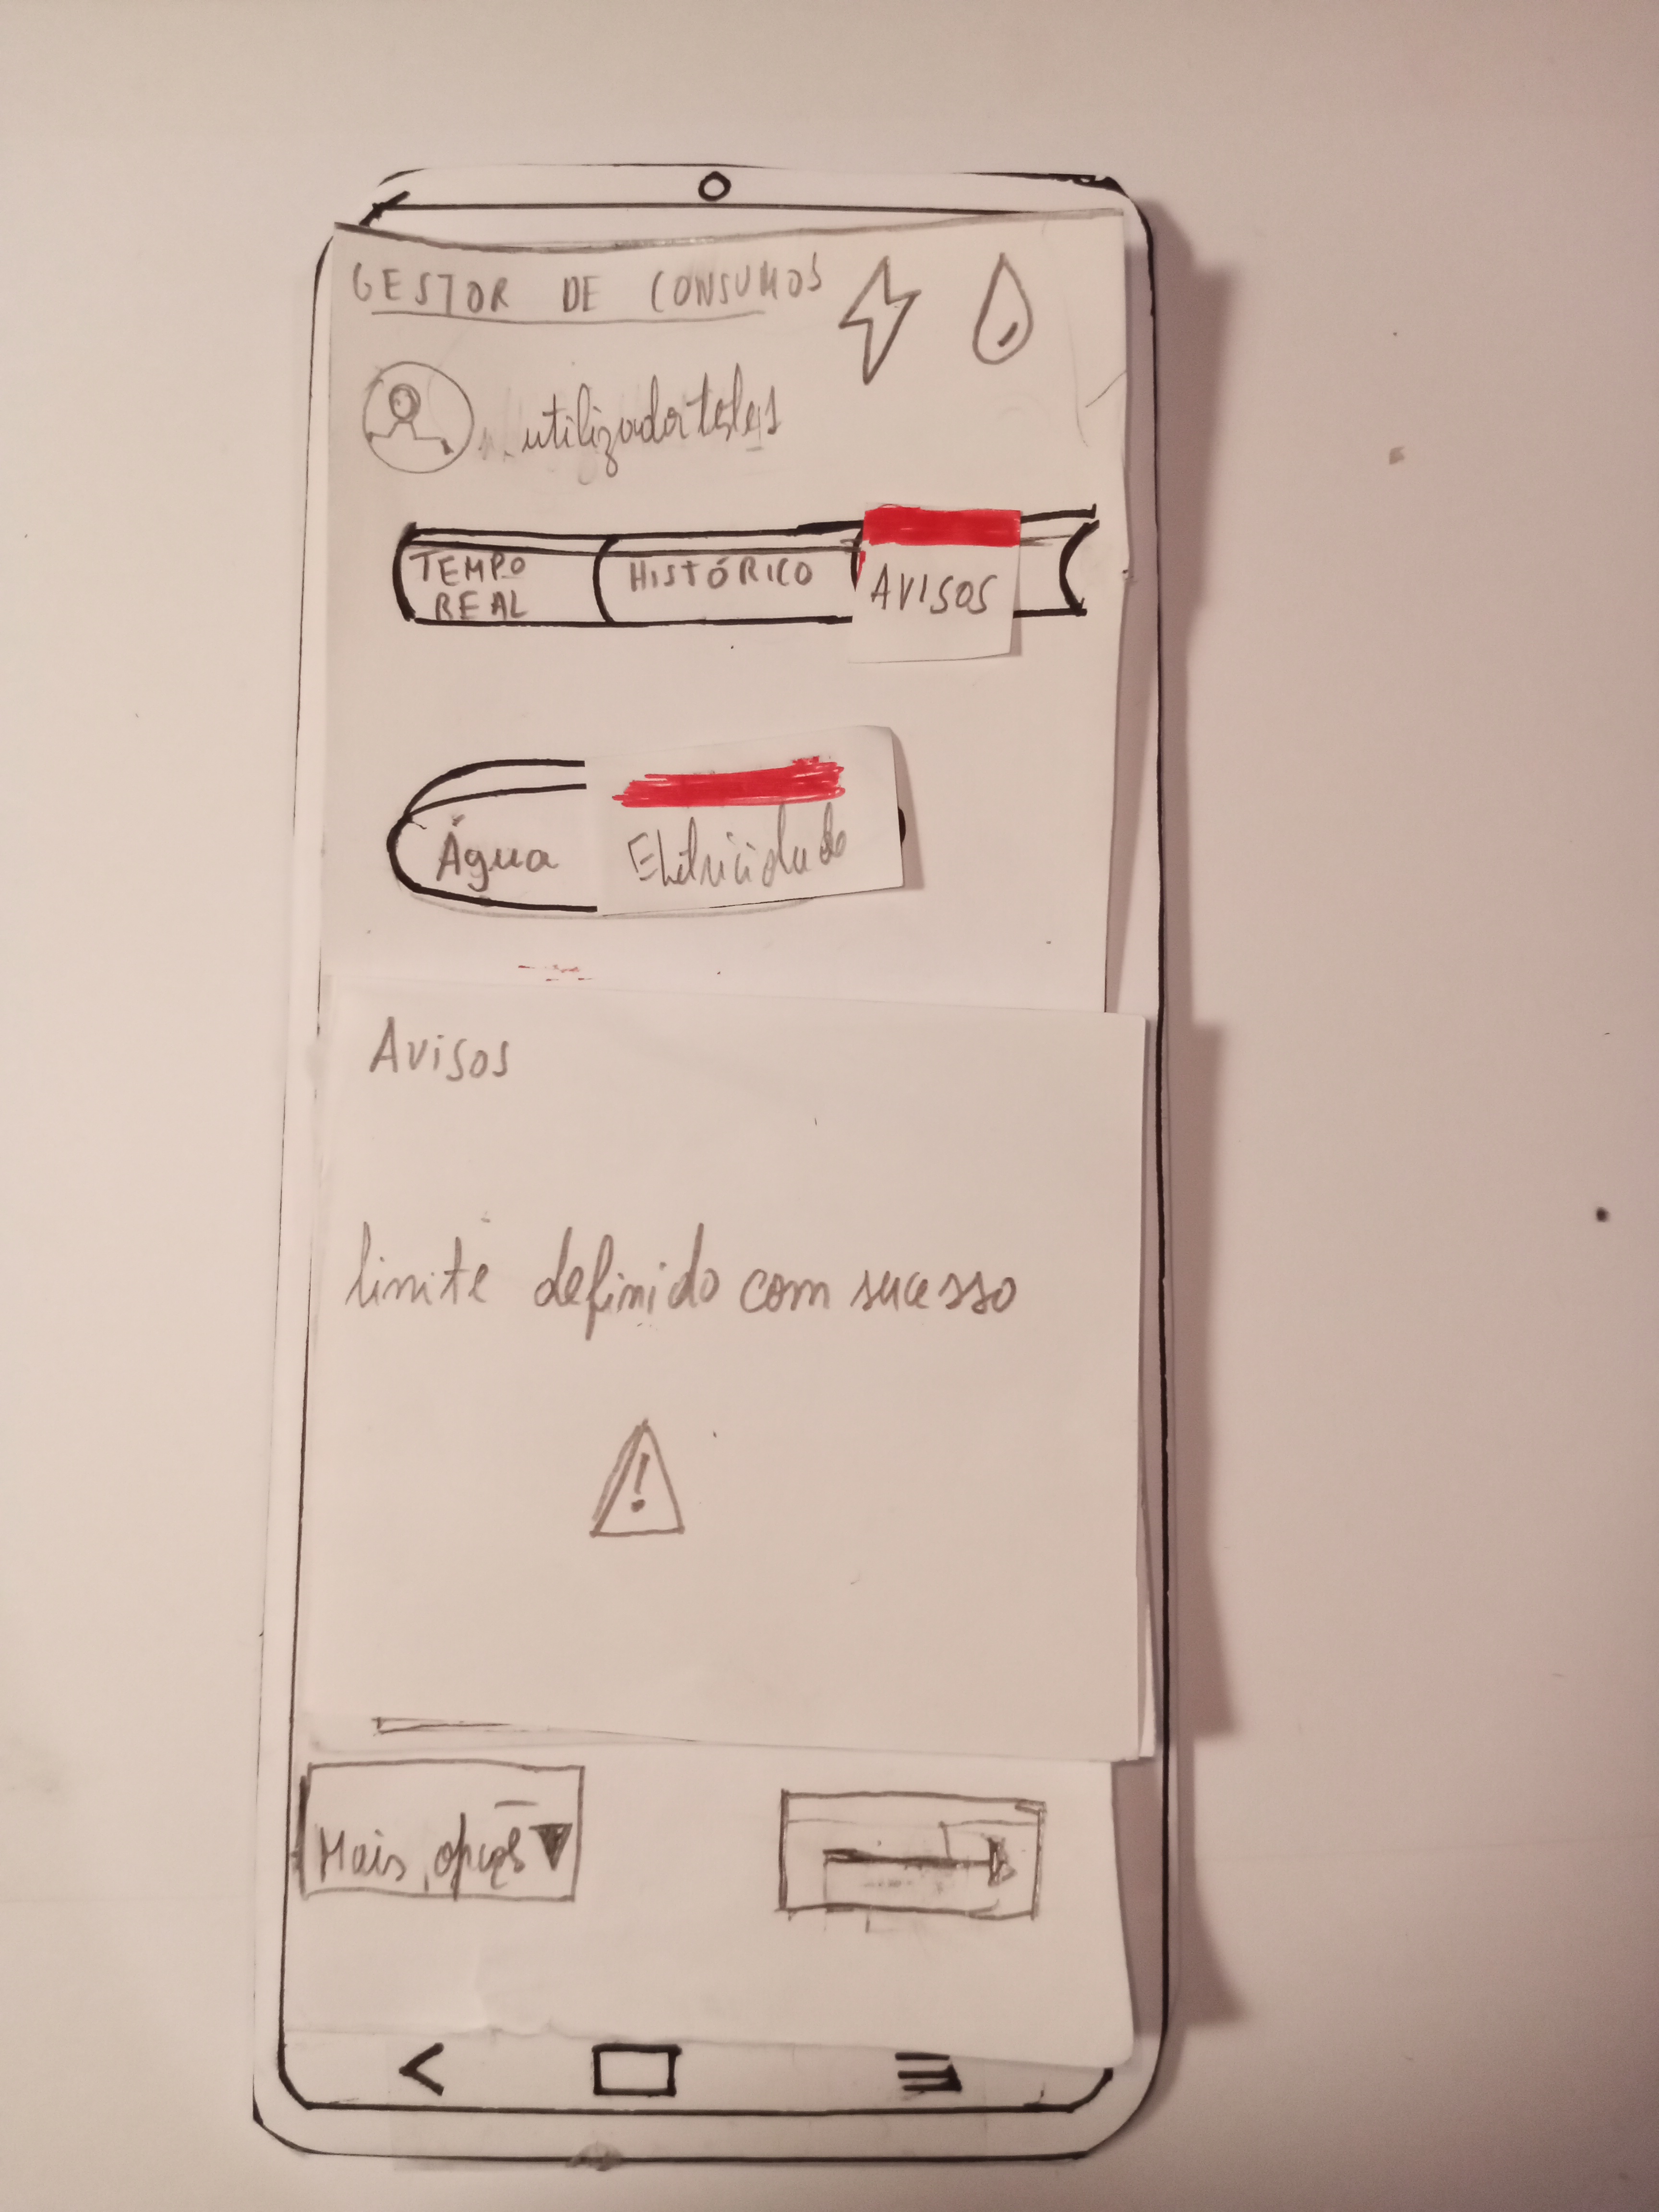 GESTOR DE CONSUMOS
utilizador teles1
TEMPO REAL
HISTÓRICO
AVISOS
Água
Eletricidade
Avisos
limite definido com sucesso
!
Mais opções